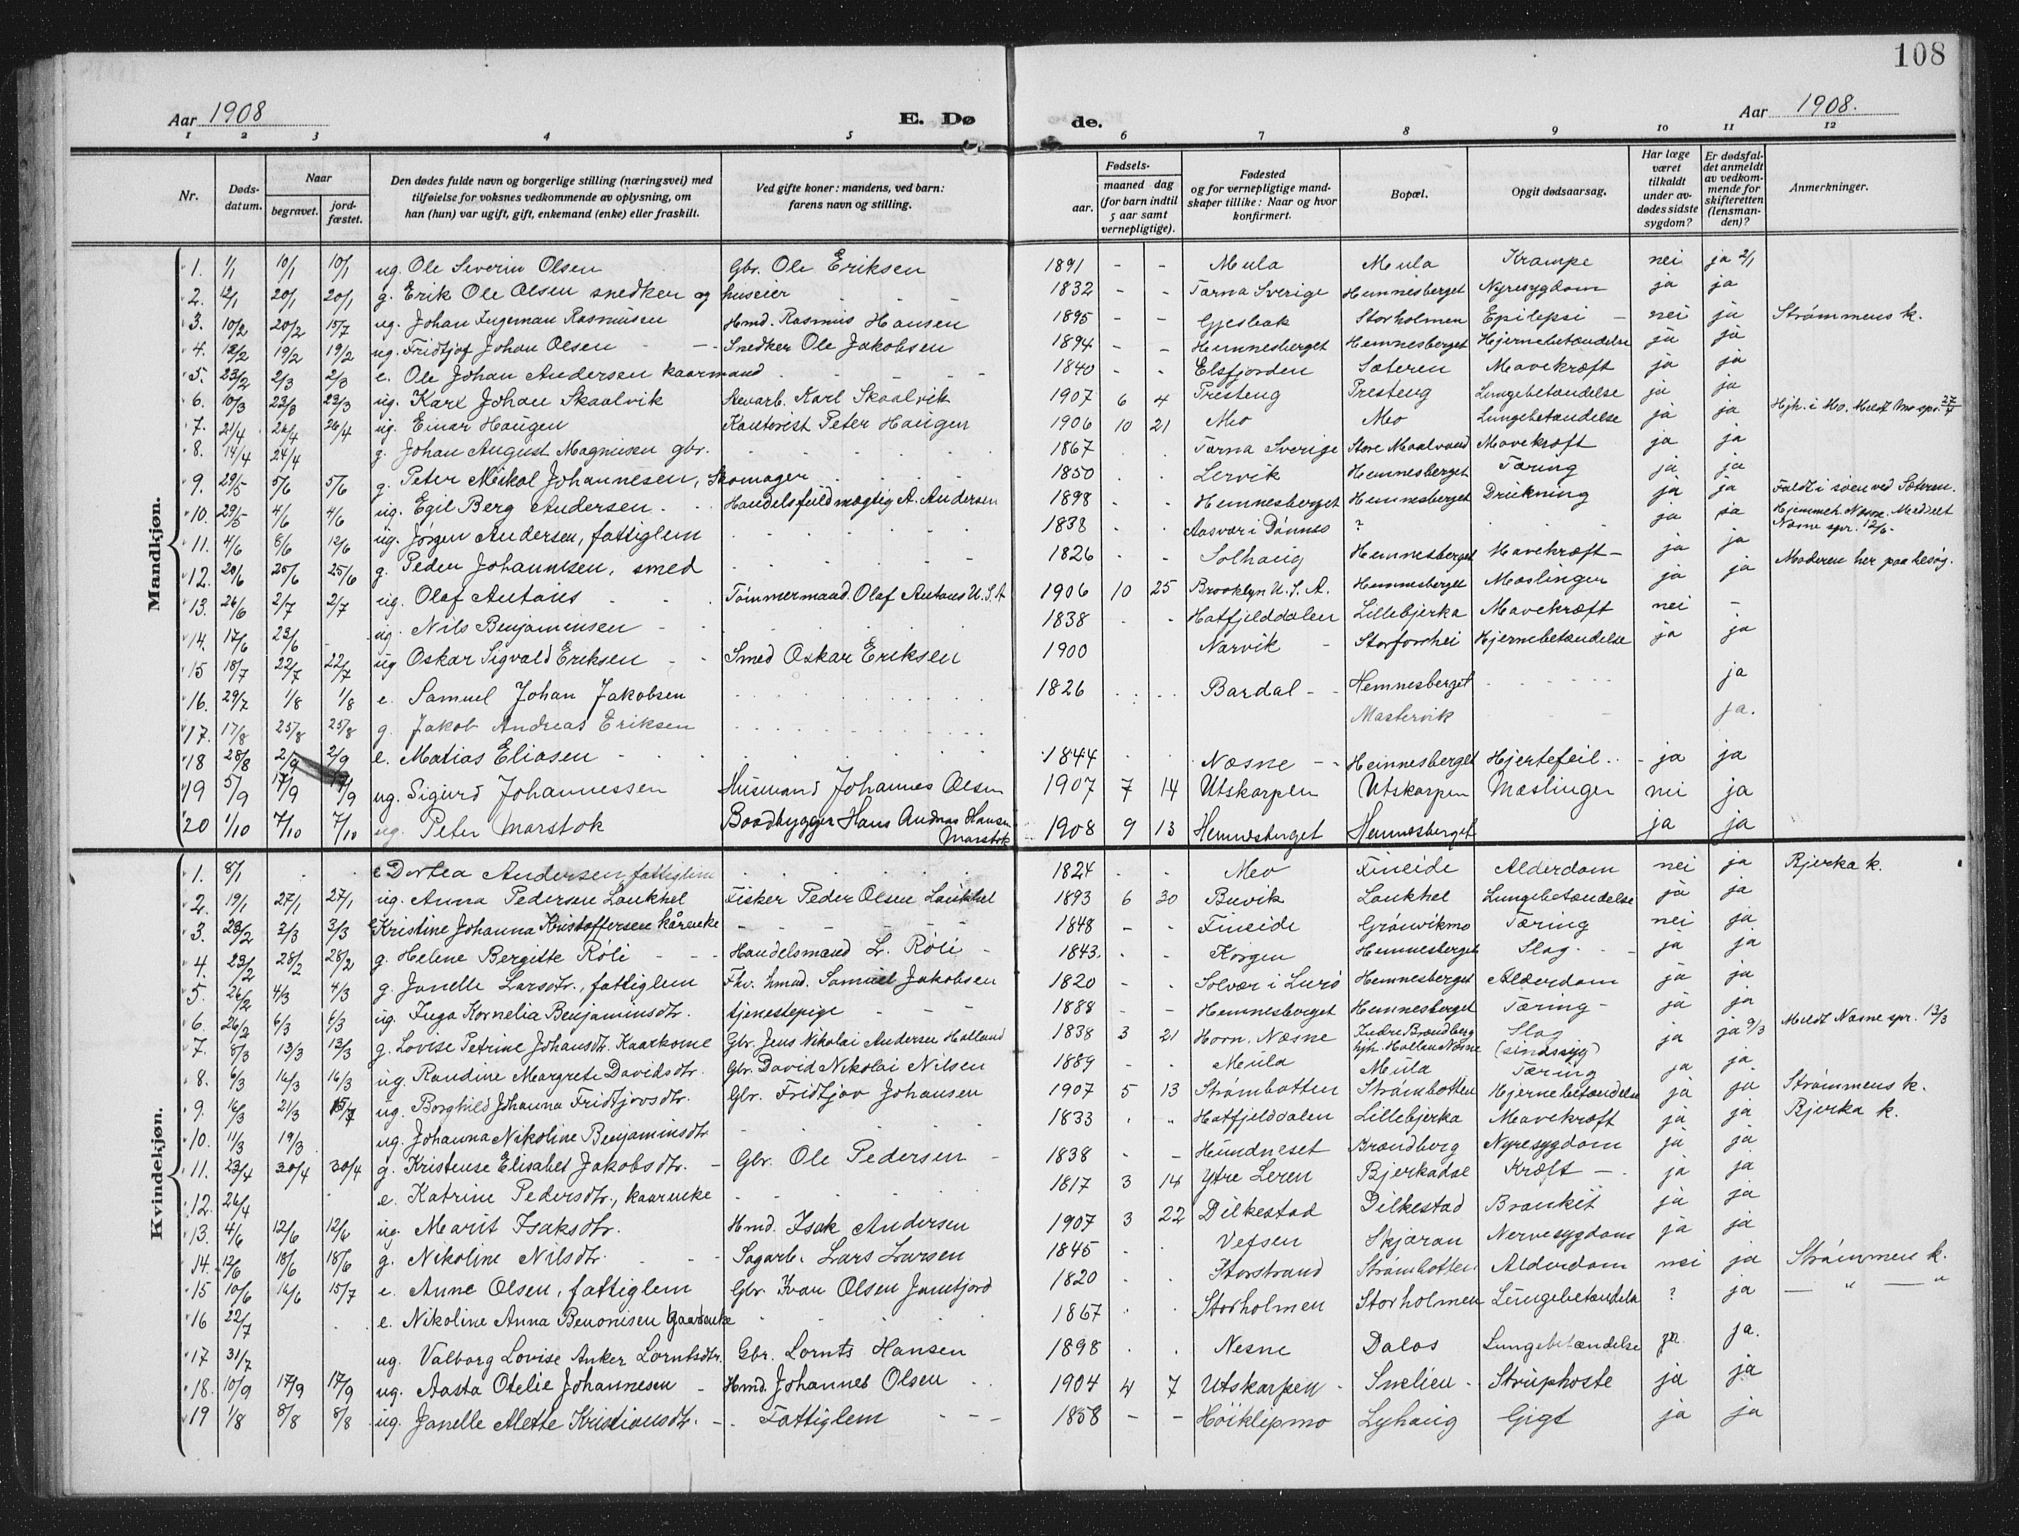 108
Aar 1908
E. Dø
de.
Aar 1908.
1 2 3 4 5 6 7 8 9 10 11 12
Nr.
Døds-
datum.
Naar
begravet.
jord-
fæstet.
Den dødes fulde navn og borgerlige stilling (næringsvei) med
tilføielse for voksnes vedkommende av oplysning, om
han (hun) var ugift, gift, enkemand (enke) eller fraskilt.
Ved gifte koner: mandens, ved barn:
farens navn og stilling.
Fødsels-
aar.
maaned dag
(for barn indtil
5 aar samt
vernepligtige).
Fødested
og for vernepligtige mand-
skaper tillike: Naar og hvor
konfirmert.
Bopæl.
Opgit dødsaarsag.
Har læge
været
tilkaldt
under av-
dødes sidste
sygdom?
Er dødsfal-
det anmeldt
av vedkom-
mende for
skifteretten
(lensman-
den)?
Anmerkninger.
Mandkjøn.
1. 1/1 10/1 10/1 ug. Ole Severin Olsen Gbr. Ole Eriksen 1891 - - Mula Mula Krampe nei ja 2/1
2. 12/1 20/1 20/1 g. Erik Ole Olsen snedker og huseier 1832 - - Tärna Sverige Hemnesberget Nyresygdom ja ja
3. 10/2 20/2 15/7 ug. Johan Ingeman Rasmusen Hmd. Rasmus Hansen 1895 - - Gjesbak Storholmen Epilepsi - nei ja Strømmens k.
4. 12/2 19/2 19/2 ug. Fridtjof Johan Olsen - - Snedker Ole Jakobsen 1894 - - Hemnesberget Hemnesberget Hjernebetændelse ja ja
5. 23/2 2/3 2/3 e. Ole Johan Andersen kaarmand 1840 - - Elsfjorden Sæteren Mavekræft ja ja
6. 10/3 23/3 23/3 ug. Karl Johan Skaalvik Stevarb. Karl Skaalvik 1907 6 4 Presteng Presteng Lungebetændelse ja ja
7. 21/4 26/4 26/4 ug. Einar Haugen Kontorist Peter Haugen 1906 10 21 Mo Mo Lungebetændelse ja ja Hjh. i Mo. Meldt Mo spr. 27/4
8. 14/4 24/4 g. Johan August Magnusen gbr. 1867 Tärna Sverige Store Maalvand Mavekræft ja ja
9. 29/5 5/6 5/6 g. Peter Mikal Johannesen, Skomager 1850 Lervik Hemnesberget Tæring ja ja
10. 29/5 4/6 4/6 ug. Egil Berg Andersen Handelsfuldmægtig A. Andersen 1898 Hemnesberget Hemnesberget Drukning ja ja Faldt i søen ved Sæteren.
11. 4/6 8/6 12/6 ug. Jørgen Andersen, fattiglem 1838 Aasvær i Dønnes ? ja ja Hjemmeh. Næsne. Meldt
Næsne spr. 12/6.
12. 20/6 25/6 25/6 g. Peder Johannesen, smed 1826 Solhaug Hemnesberget Mavekræft - ja ja
13. 26/6 2/7 2/7 ug. Olaf Antons Tømmermand Olaf Antons U.S.A 1906 10 25 Brooklyn U.S.A. Hemnesberget Mæslinger ja ja Moderen her paa besøg.
14. 17/6 23/6 - ug. Nils Benjaminsen 1838 Hatfjelddalen Lillebjerka Mavekræft nei -
15 18/7 22/7 22/7 ug Oskar Sigvald Eriksen Smed Oskar Eriksen 1900 Narvik - Storforshei Hjernebetændelse ja ja
16. 29/7 1/8 1/8 e. Samuel Johan Jakobsen 1826 Bardal - - Hemnesberget ja
17. 17/8 25/8 25/8 g. Jakob Andreas Eriksen Mastervik ja.
18 28/8 2/9 2/9 e. Matias Eliasen 1844 Næsne - - Hemnesberget Hjertefeil - ja ja
19 5/9 17/9 17/9 ug. Sigurd Johannessen Husmand Johannes Olsen 1907 7 14 Utskarpen Utskarpen Mæslinger nei ja
20 1/10 7/10 7/10 ug. Peter Marstok Baadbygger Hans Andreas Hansen
Marstok 1908 9 13 Hemnesberget Hemnesberget ja ja
Kvindekjøn.
1. 8/1 e Dortea Andersen, fattiglem 1824 Mo Fineide Alderdom nei ja Bjerka k.
2. 19/1 27/1 27/1 ug. Anna Pedersen Laukhel Fisker Peder Olsen Laukhel 1893 6 30 Buvik Laukhel Lungebetændelse ja ja
3. 23/2 2/3 3/3 e Kristine Johanna Kristoffersen kårenke 1848 - Fineide Grønvikmo Tæring nei ja
4. 23/2 28/2 28/2 g. Helene Bergitte Røli - Handelsmand L. Røli 1843. Korgen Hemnesberget Slag ja ja
5. 26/2 4/3 4/3 g. Janelle Larsdtr., fattiglem Fhv. hmd. Samuel Jakobsen 1820 Solvær i Lurø Hemnesberget Alderdom ja ja
6. 26/2 6/3 6/3 ug. Inga Kornelia Benjaminsdtr. tjenestepige 1888 - Hemnesberget Hemnesberget Tæring - ja ja
7. 8/3 13/3 13/3 g. Lovise Petrine Johansdtr. Kaarkone Gbr. Jens Nikolai Andersen Holland 1838 3 21 Horn, Næsne Indre Brændberg
hjh. Hollen Næsne Slag
(sindssyg) ja ja 9/3 Meldt Næsne spr. 13/3
8. 6/3 16/3 16/3 ug. Randine Margrete Davidsdtr. Gbr. David Nikolai Nilsen 1889 Mula Mula Tæring ja ja
9. 16/3 21/3 15/7 ug. Borghild Johanna Fridtjovsdtr. Gbr. Fridtjov Johansen 1907 5 13 Strømbotten Strømbotten Hjernebetændelse ja ja Strømmens k.
10. 11/3 19/3 ug. Johanna Nikoline Benjaminsdtr 1833 Hatfjelddalen Lillebjerka Mavekræft ja ja Bjerka k.
11. 23/4 30/4 30/4 g. Kristense Elisabet Jakobsdtr. - Gbr. Ole Pedersen - 1838 - - Hundneset Brændberg Nyresygdom ja ja
12. 26/4 e. Katrine Pedersdtr., kaarenke 1817 3 14 Ytre Leren Bjerkadal Kræft - ja ja
13. 4/6 12/6 12/6 ug. Marit Isaksdtr. Hmd. Isak Andersen 1907 3 22 Dilkestad Dilkestad Bronkit ja ja
14. 12/6 18/6 18/6 g. Nikoline Nilsdtr. Sagarb. Lars Larsen 1845 Vefsen Skjæran Nervesygdom ja ja
15 10/6 16/6 15/7 e. Anne Olsen, fattiglem Gbr. Ivar Olsen Jamtjord 1820 Storstrand Strømbotten Alderdom nei ja Strømmen k.
16 22/7 e. Nikoline Anna Benonisen Gaardenke 1867 Storholmen Storholmen Lungebetændelse ? ja - " - "
17 31/7 ug. Valborg Lovise Anker Lorntsdtr. Gbr. Lornts Hansen 1898 Nesne Dalos Lungebetændelse ja. ja.
18. 10/9 17/9 17/9 ug. Aasta Otelie Johannesen Hmd. Johannes Olsen 1904 4 7 Utskarpen Smelien Strüphoste ja ja
19 1/8 8/8 8/8 ug. Janelle Alette Kristiansdtr. - Fattiglem 1858 - - Høiklipmo Lyhaug Gigt ja ja